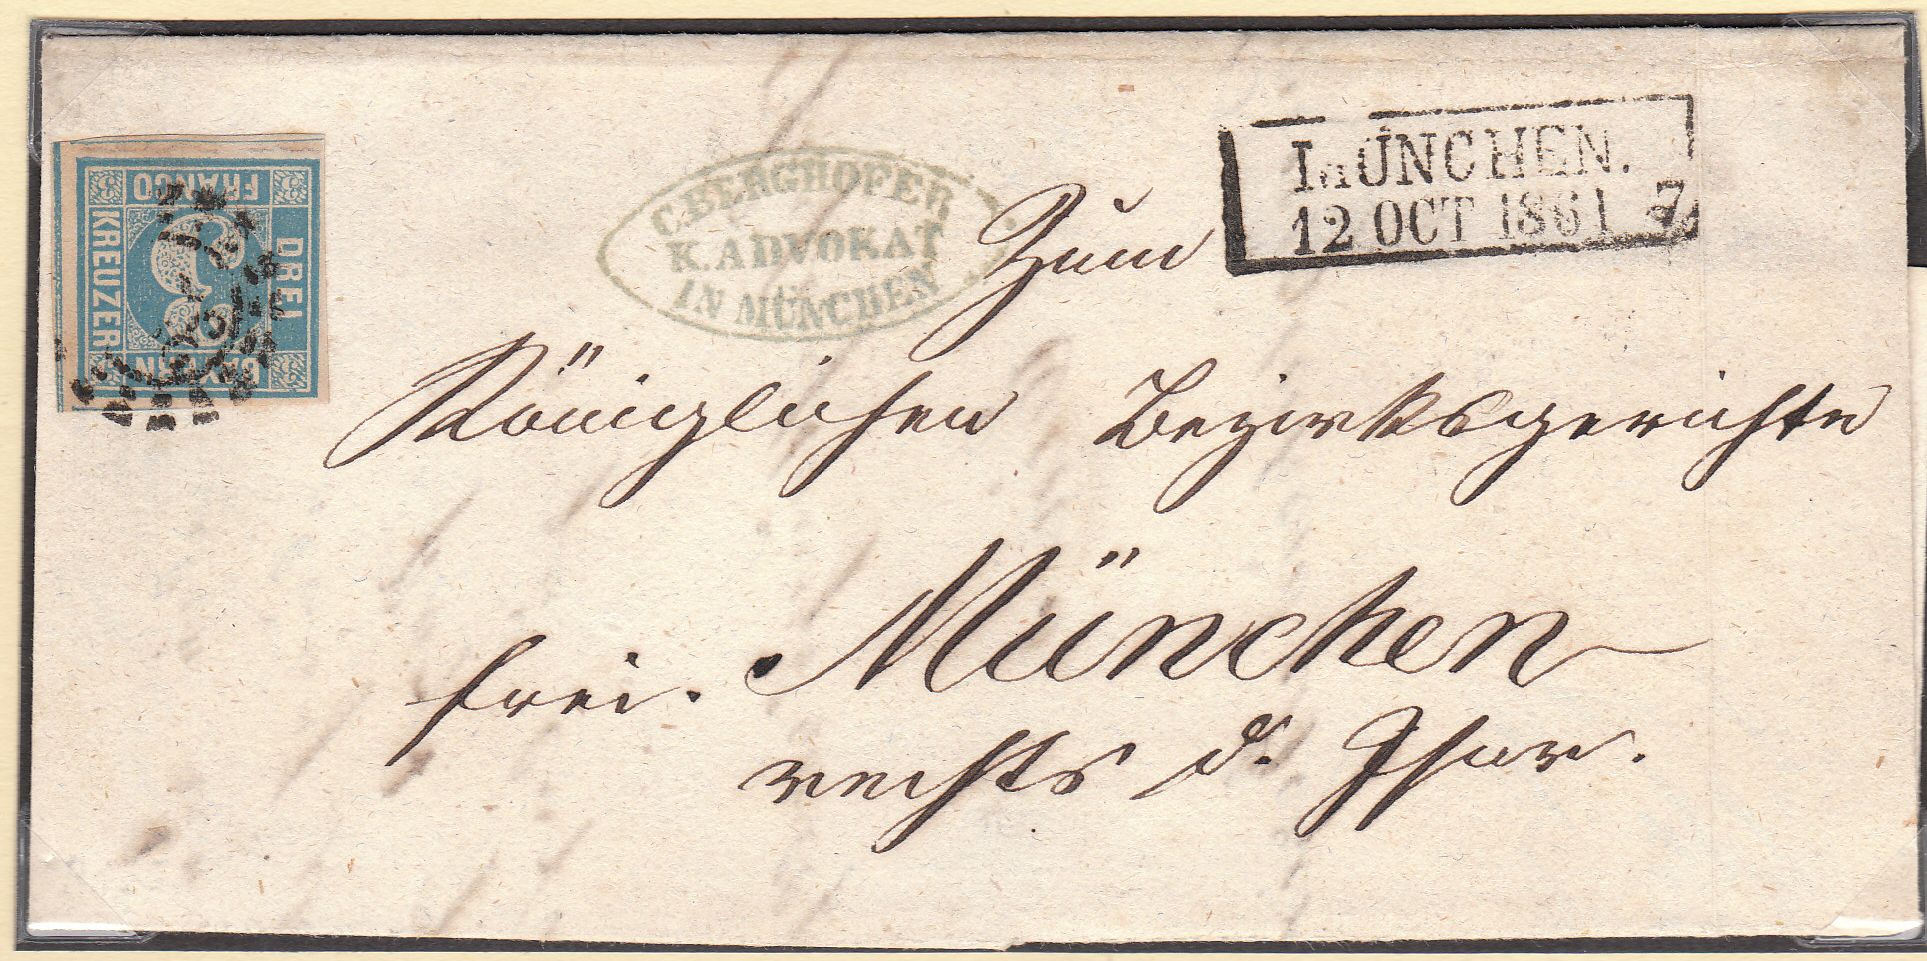 BAYERN
DREI
KREUZER
FRANCO
3
C. BERGHOFER
K. ADVOKAT
IN MÜNCHEN
MÜNCHEN.
12 OCT 1861 7
Zum
Königlichen Bezirksgerichte
München
frei.
rechts d. Isar.